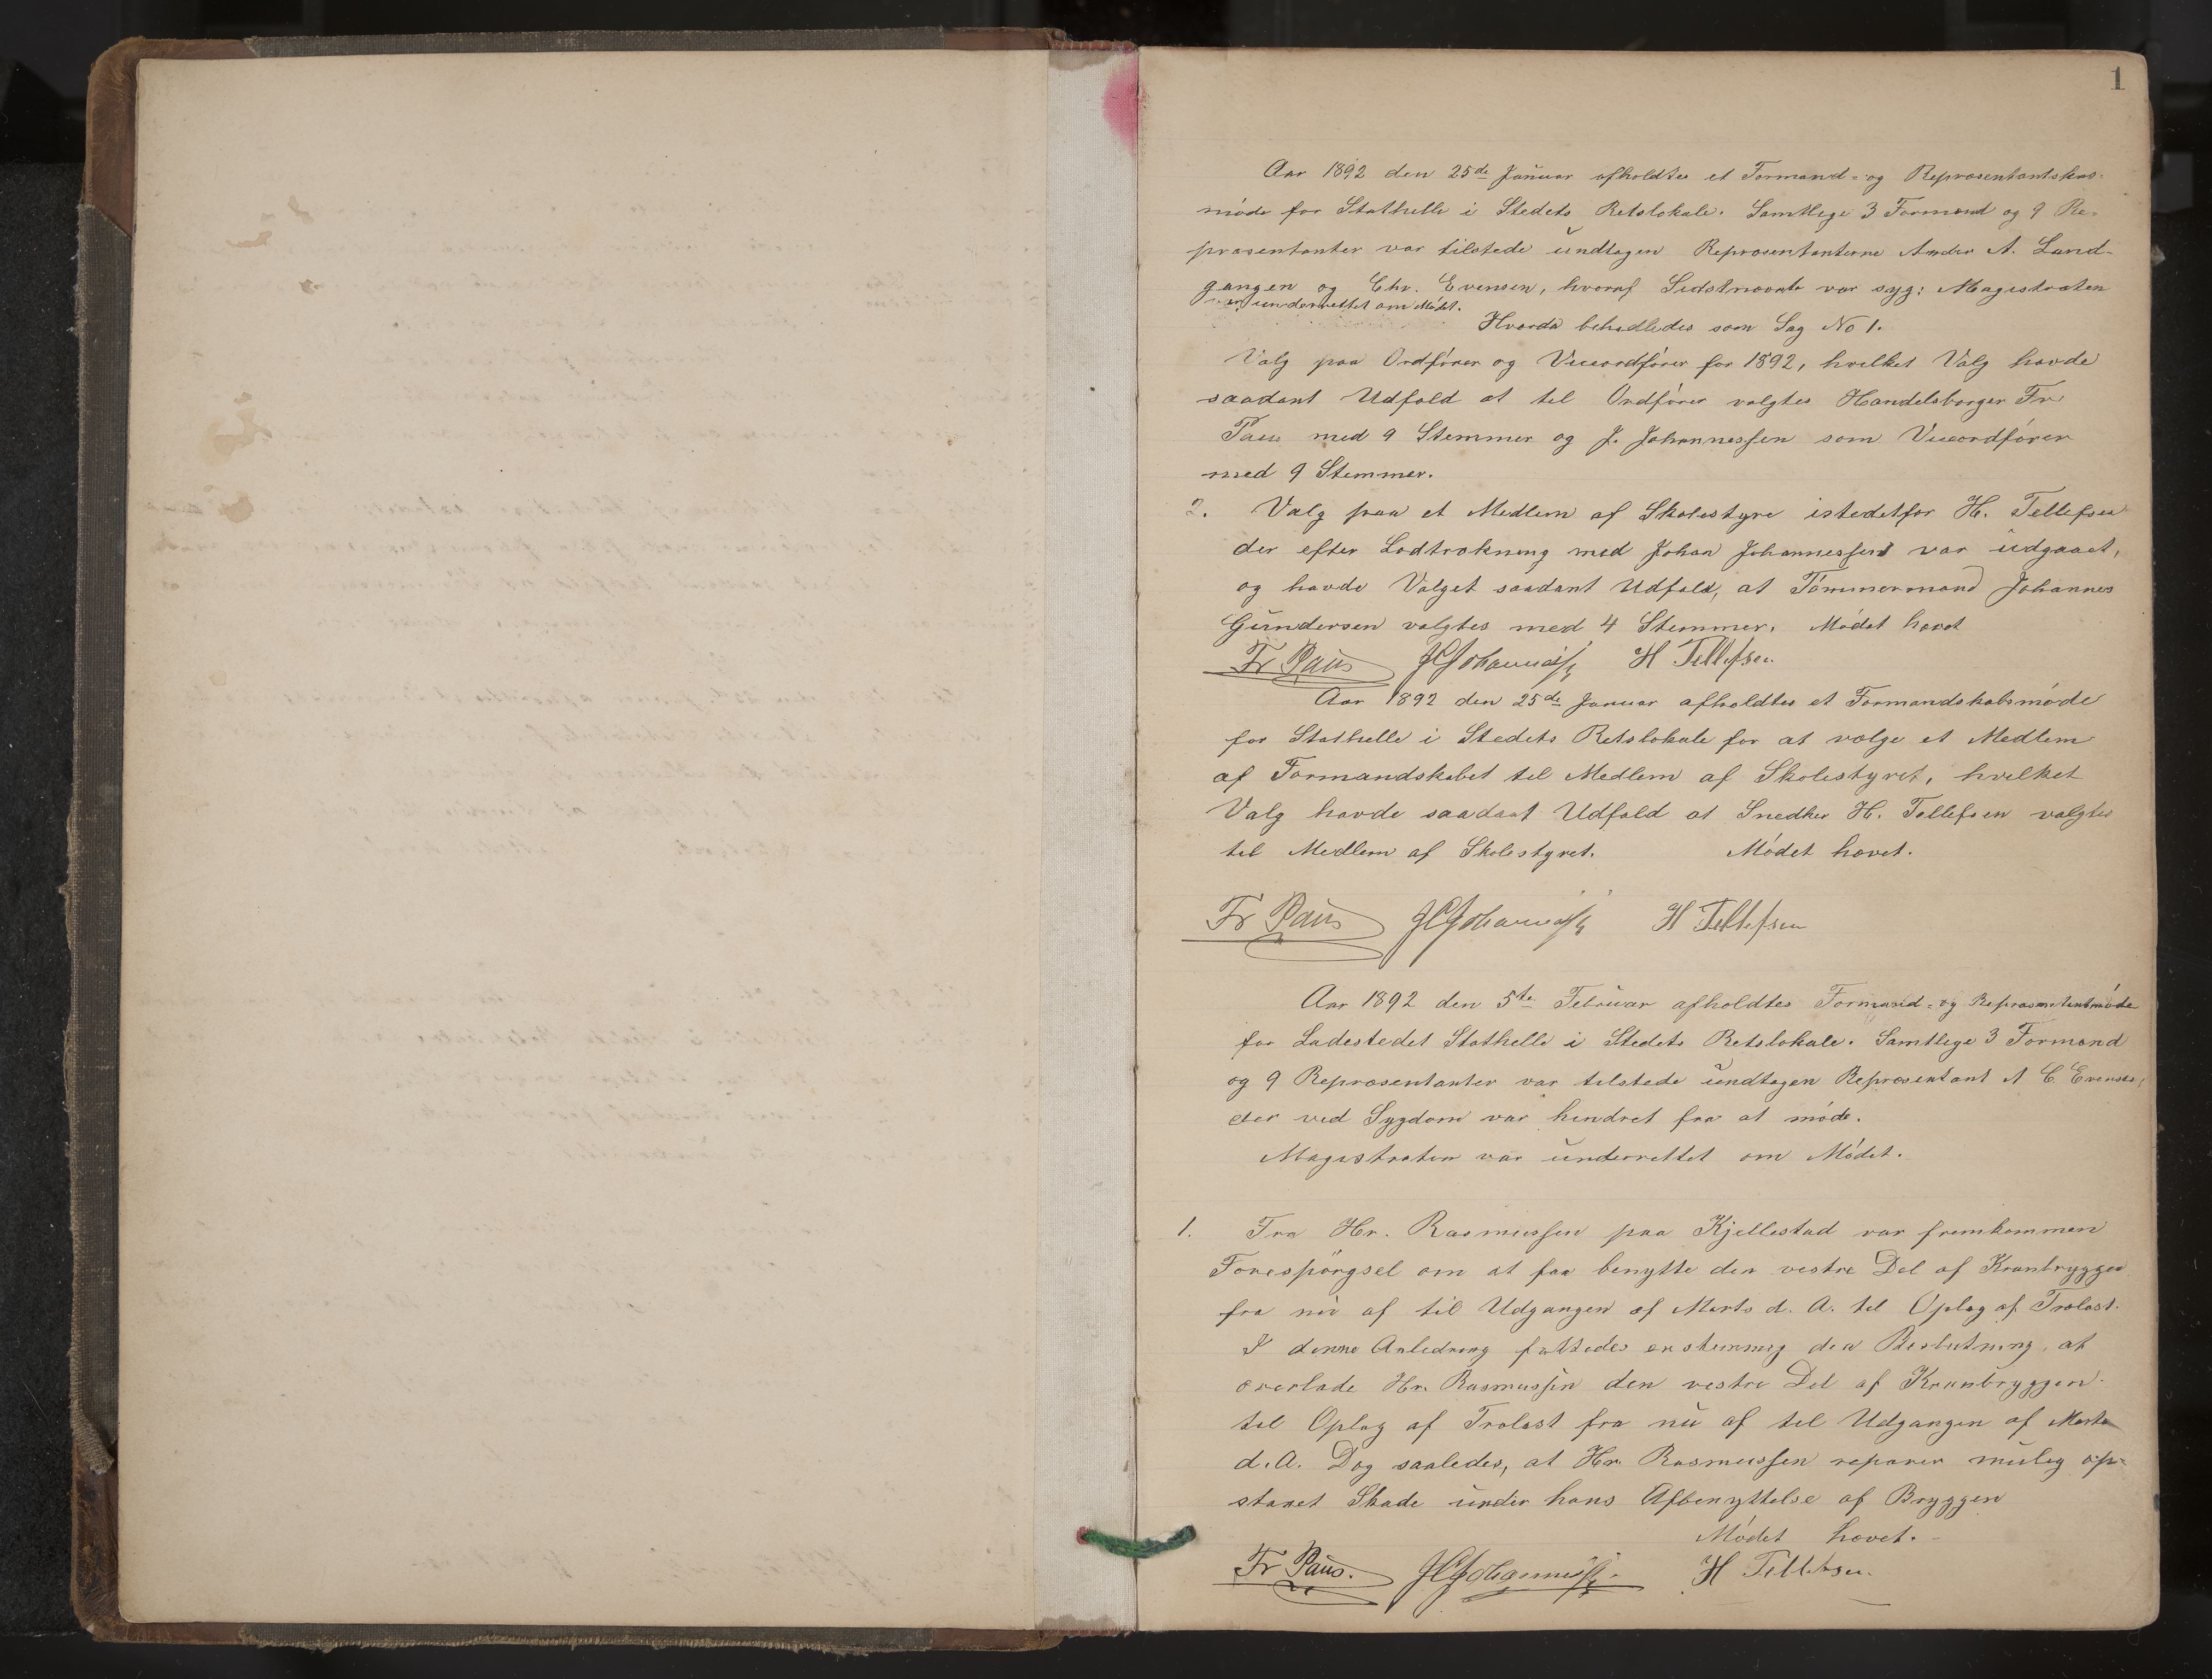 1
Aar 1892 den 25de Januar afholdtes et Formand- og Repræsentantskas-
møde for Stathelle i Stedets Retslokale. Samtlige 3 Formænd og 9 Re-
præsentanter var tilstede undtagen Repræsentanterne Anders A. Land-
gangen og Chr. Evensen, hvoraf Sidstnævnte var syg; Magistraten
var underrettet om Mødet.
Hvorda behadledes som Sag No 1.
Valg paa Ordfører og Viceordfører for 1892, hvilket Valg havde
saadant Udfald at til Ordfører valgtes Handelsborger Fr.
Paus med 9 Stemmer og J. Johannessen som Viceordfører
med 9 Stemmer.
2. Valg paa et Medlem af Skolestyre istedetfor H. Tellefsen
der efter Lodtrækning med Johan Johannessen var udgaaet,
og havde Valget saadant Udfald, at Tømmermand Johannes
Gundersen valgtes med 4 Stemmer. Mødet hævet
Fr Paus JCJohannessen H Tellefsen
Aar 1892 den 25de Januar afholdtes et Formandskabsmøde
for Stathelle i Stedets Retslokale for at vælge et Medlem
af Formandskabet til Medlem af Skolestyret, hvilket
Valg havde saadant Udfald at Snedker H. Tellefsen valgtes
til Medlem af Skolestyret. Mødet hævet.
Fr Paus JCJohannessen H Tellefsen
Aar 1892 den 5te Februar afholdtes Formand- og Repræsentantmøde
for Ladestedet Stathelle i Stedets Retslokale. Samtlige 3 Formænd
og 9 Repræsentanter var tilstede undtagen Repræsentant A C. Evensen,
der ved Sygdom var hindret fra at møde.
Magistraten var underrettet om Mødet.
1. Fra Hr. Rasmussen paa Kjellestad var fremkommen
Forespørgsel om at faa benytte den vestre Del af Kranbryggen
fra nu af til Udgangen af Marts d. A. til Oplag af Trælast.
I denne Anledning fattedes enstemmig den Beslutning, at
overlade Hr. Rasmussen den vestre Del af Kranbryggen
til Oplag af Trælast fra nu af til Udgangen af Marts
d. A. Dog saaledes, at Hr. Rasmussen reparer mulig op-
staaet Skade under hans Afbenyttelse af Bryggen
Mødet hævet.
Fr Paus. JCJohannessen. H Tellefsen.